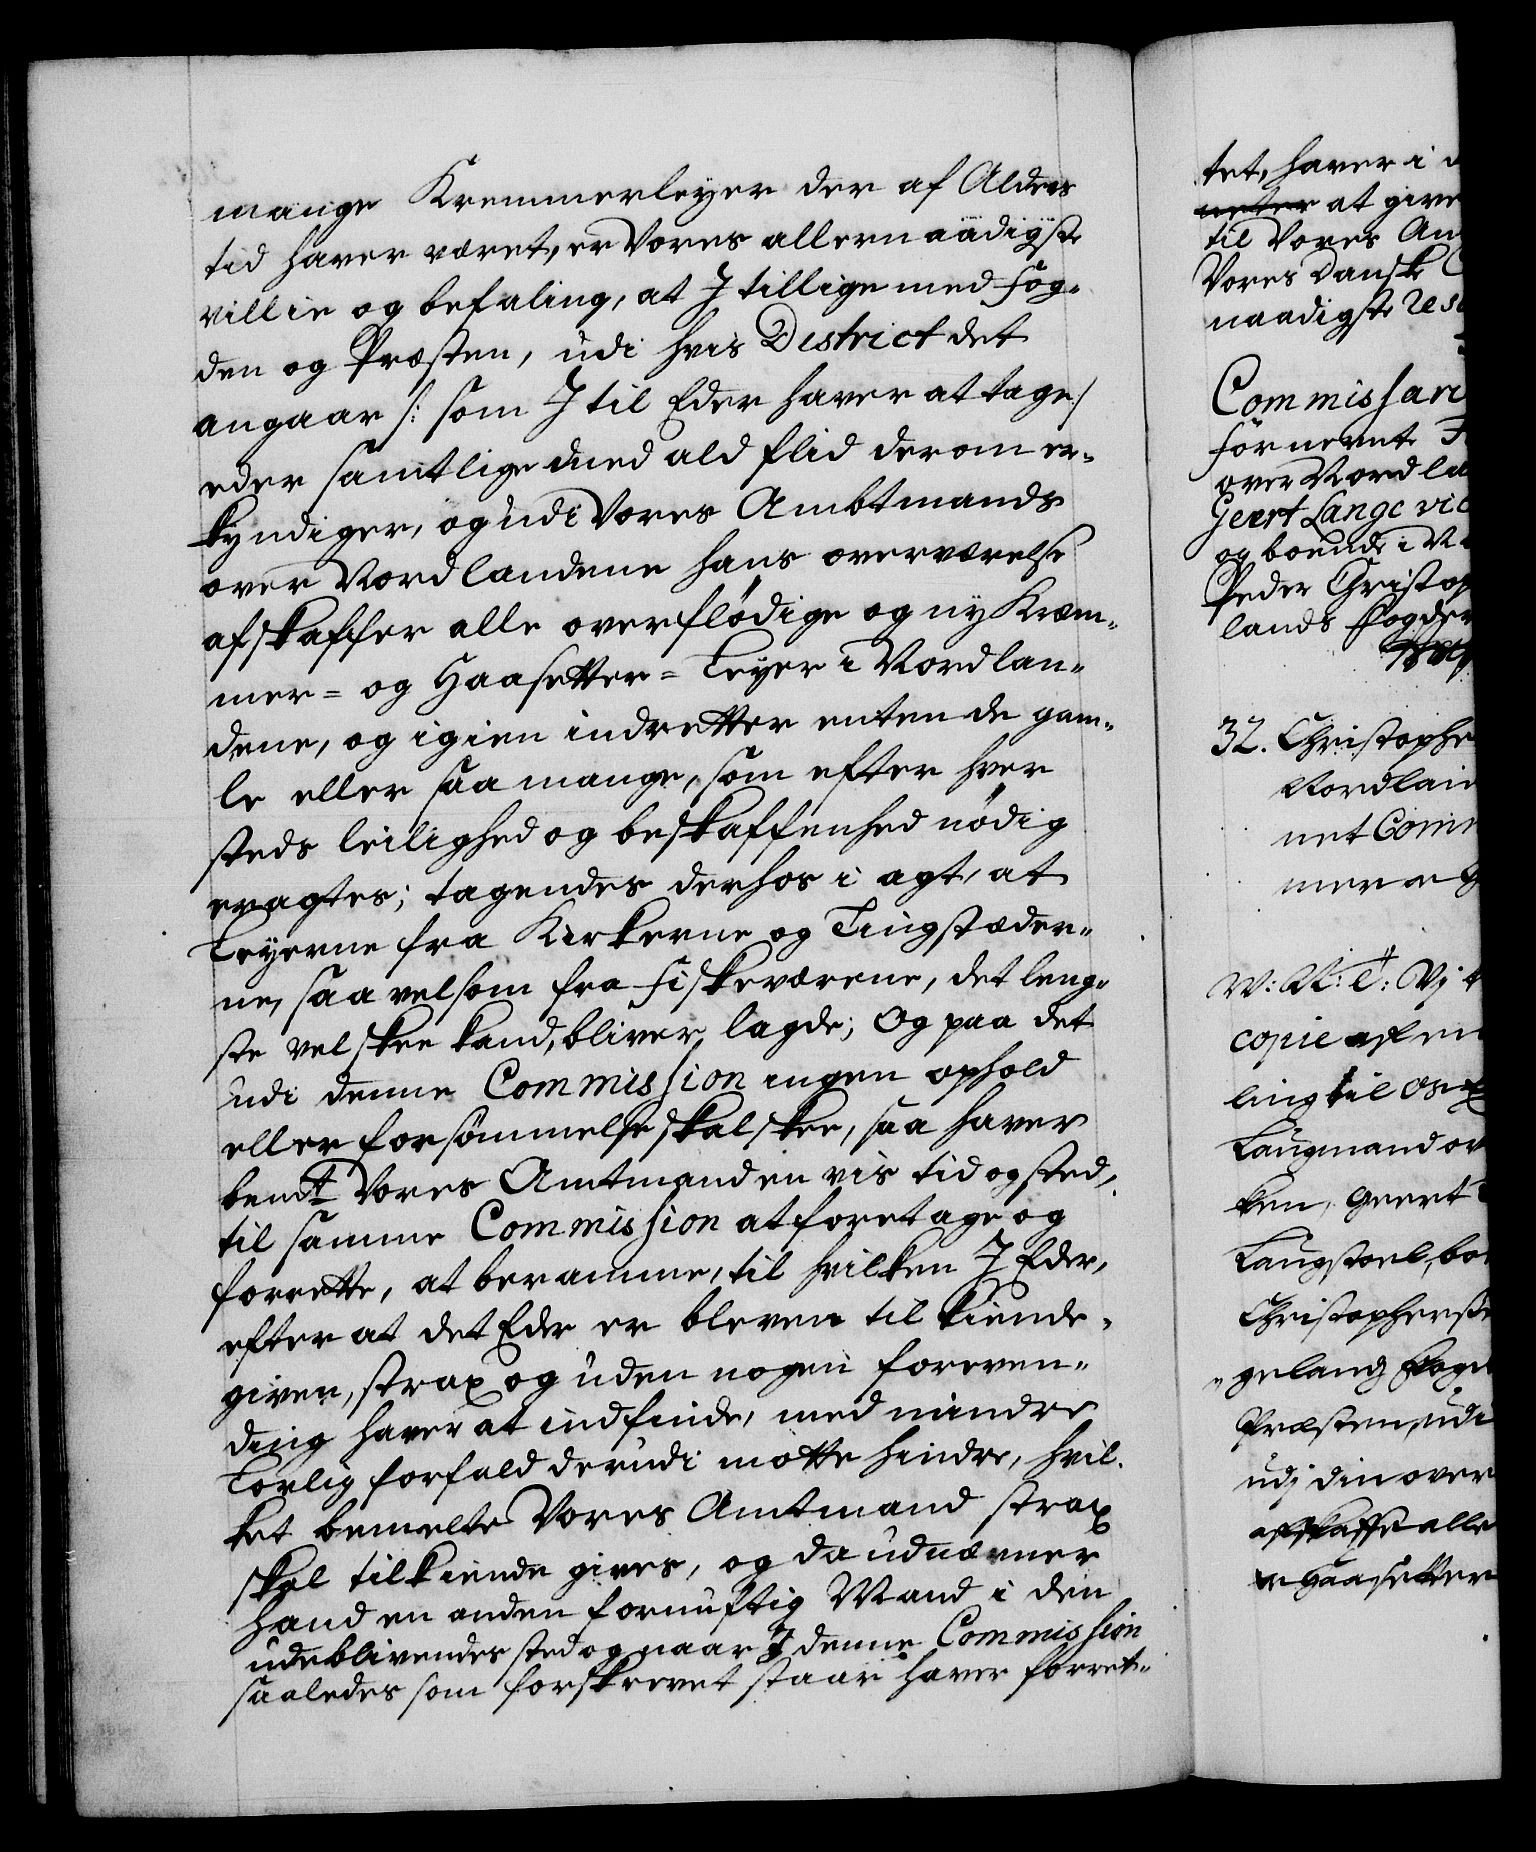 mange Kremmerleyer der af Alders
tid haver været, er Vores allernaadigste
villie og befaling, at I tillige med Fog-
den og Præsten, udi hvis District det
angaar /: som I til Eder haver at tage /
eder samtlige med ald flid derom er-
kyndiger, og udi Vores Ambtmands
over Nordlandene hans overværelse
afskaffer alle overflødige og ny Kræm-
mer= og Haasetter= Leyer i Nordlan-
dene, og igien indretter enten de gam-
le eller saa mange, som efter hver
steds leilighed og beskaffenhed nödig
eragtes; tagendes derhos i agt, at
Leyerne fra Kirkerne og Tingstæder-
ne, saavelsom fra Fiskeværene, det leng-
ste vel skee kand, bliver lagde; Og paa det
udi denne Commission ingen ophold
eller forsømmelse skal skee, saa haver
bemt Vores Amtmand en vis tid og sted,
til samme Commission at foretage og
forrette, at beramme, til hvilken I Eder,
efter at det Eder er bleven til kiende-
given, strax og uden nogen foreven-
ding haver at indfinde, med mindre
Lovlig forfald derudi motte hindre, hvil-
ket bemelte Vores Amtmand strax
skal tilkiende gives, og da udnævner
hand en anden fornuftig Mand i den
udeblivendes sted og naar I denne Commission
saaledes som forskrevet staar haver forret-
tet, haver i
at give
til Vores
Vores Danske
naadigste
Commissari
Fornevnte
over Nordla
Geert Lange
og boende i
Peder Christop
lands Fogder
32. Christophe
Nordlan
net Comm
mer
W: A: T: Vj
copie af en
ling til os
Laugmand ov
ken, Geert
Laugstoel, bo
Christopherse
geland Foge
Præsten, udi
udj din over
afskaffe alle
Haasetter